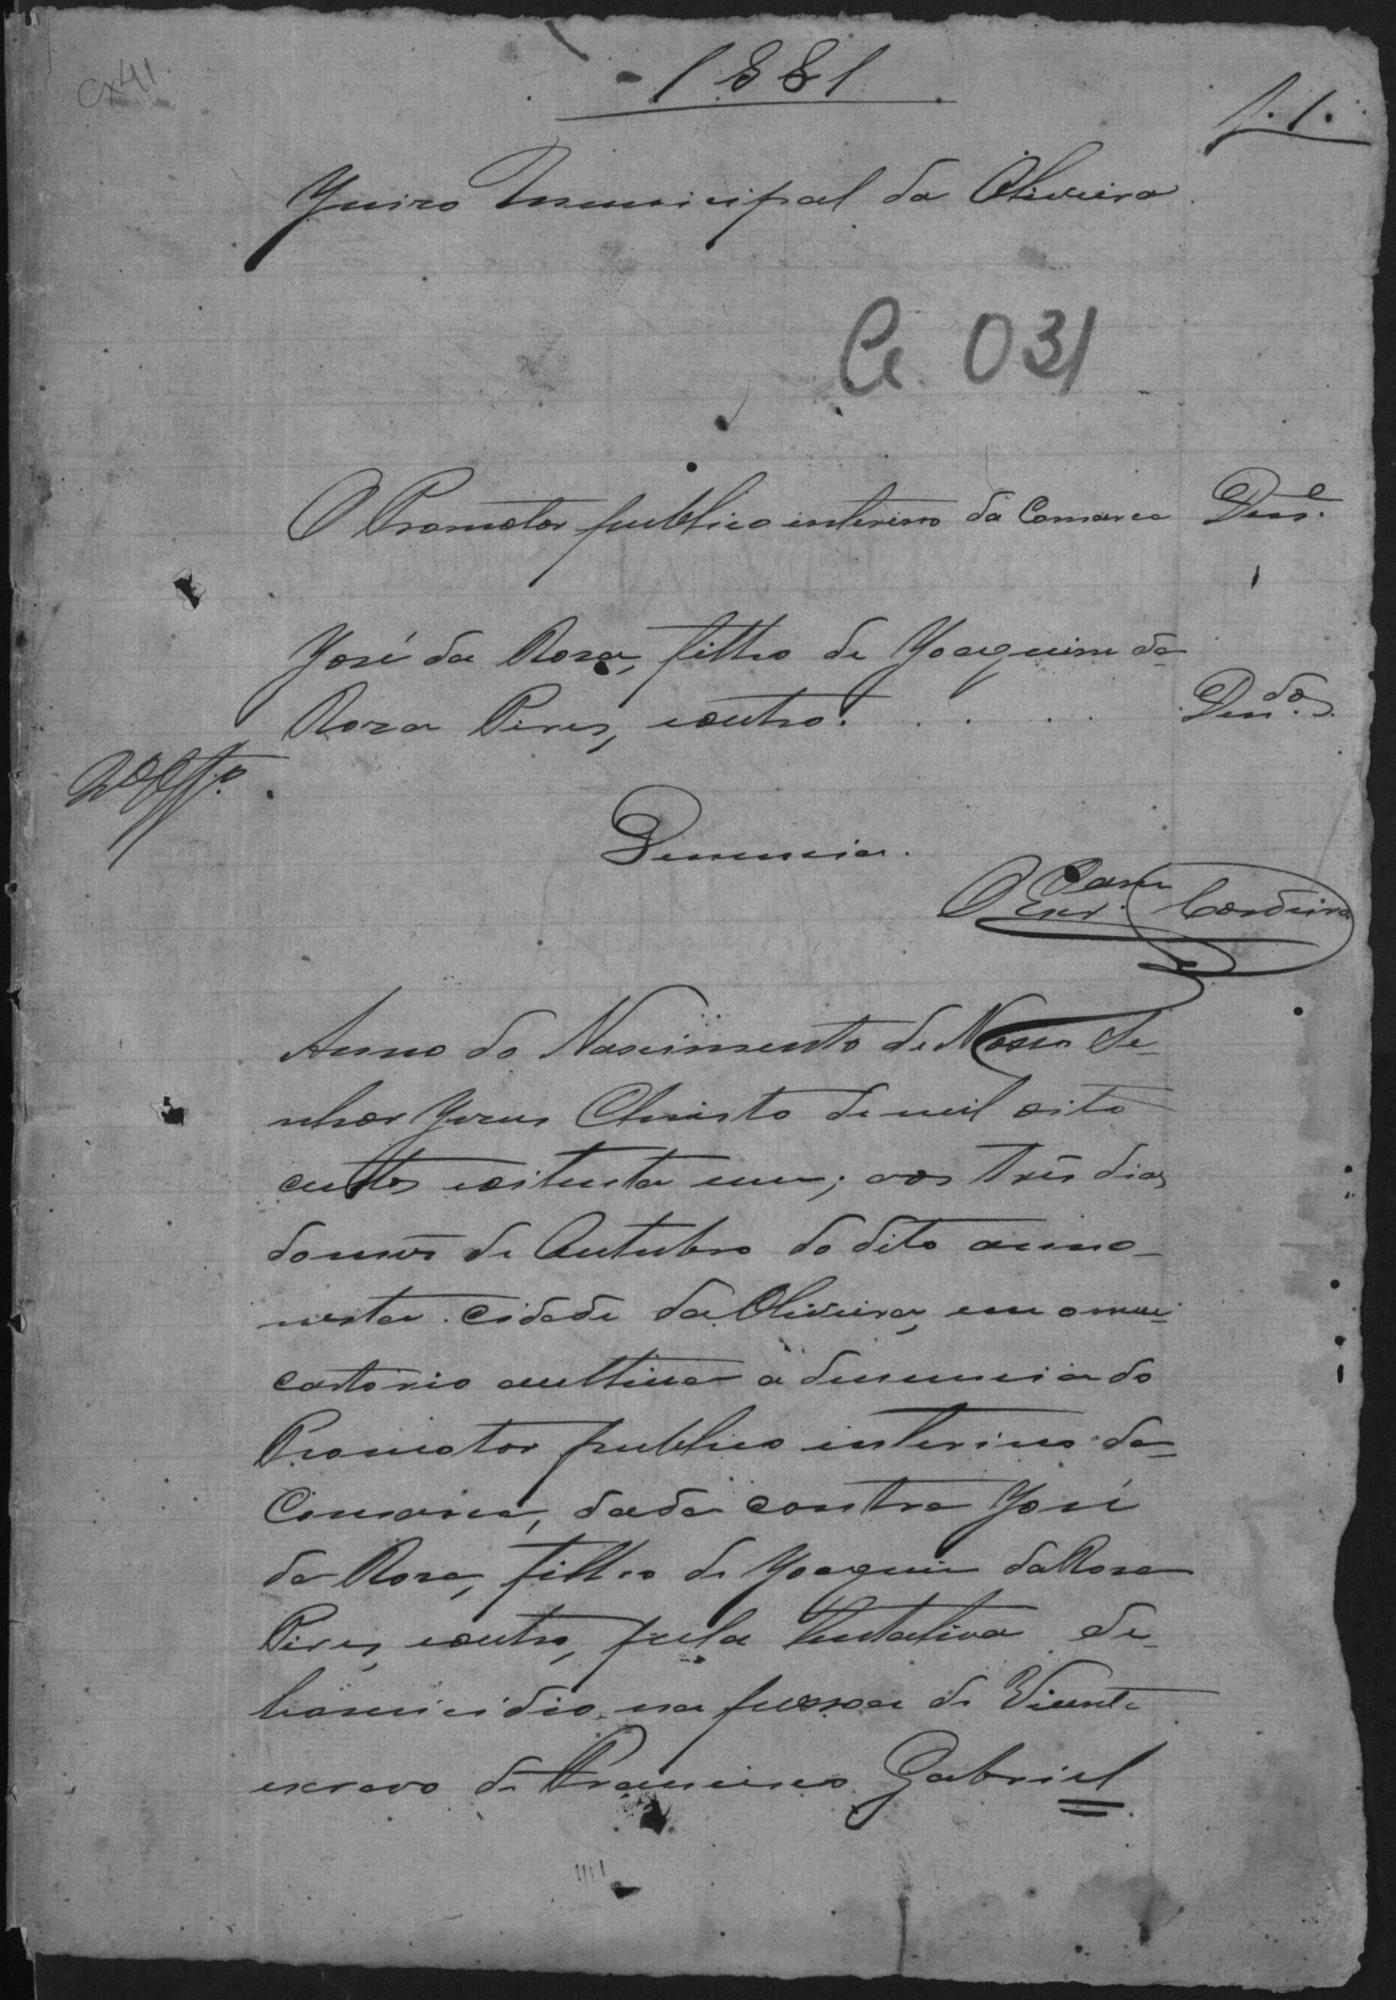 cx 41
1881
f. 1.
Juizo Municipal da Oliveira
Cr 031
O Promotor publico interino da Comarca Den.e
José da Rosa, filho de Joaquim da
Rosa Peres, eoutro. . . . . Den.dos
Denuncia.
O Escr.am Cordeiro
Anno do Nascimento de Nosso Se-
nhor Jesus Christo de mil oito
centos eoitenta eum; aos tres dias
domes de Outubro do dito anno
nesta Cidade da Oliveira, em omeu
cartorio authuei a denuncia do
Promotor publico interino da
Comarca, dada contra José
da Rosa, filho de Joaquim daRosa
Peres, eoutro, pela tentativa de
homicidio na pessoa de Vicente
escravo de Francisco Gabriel